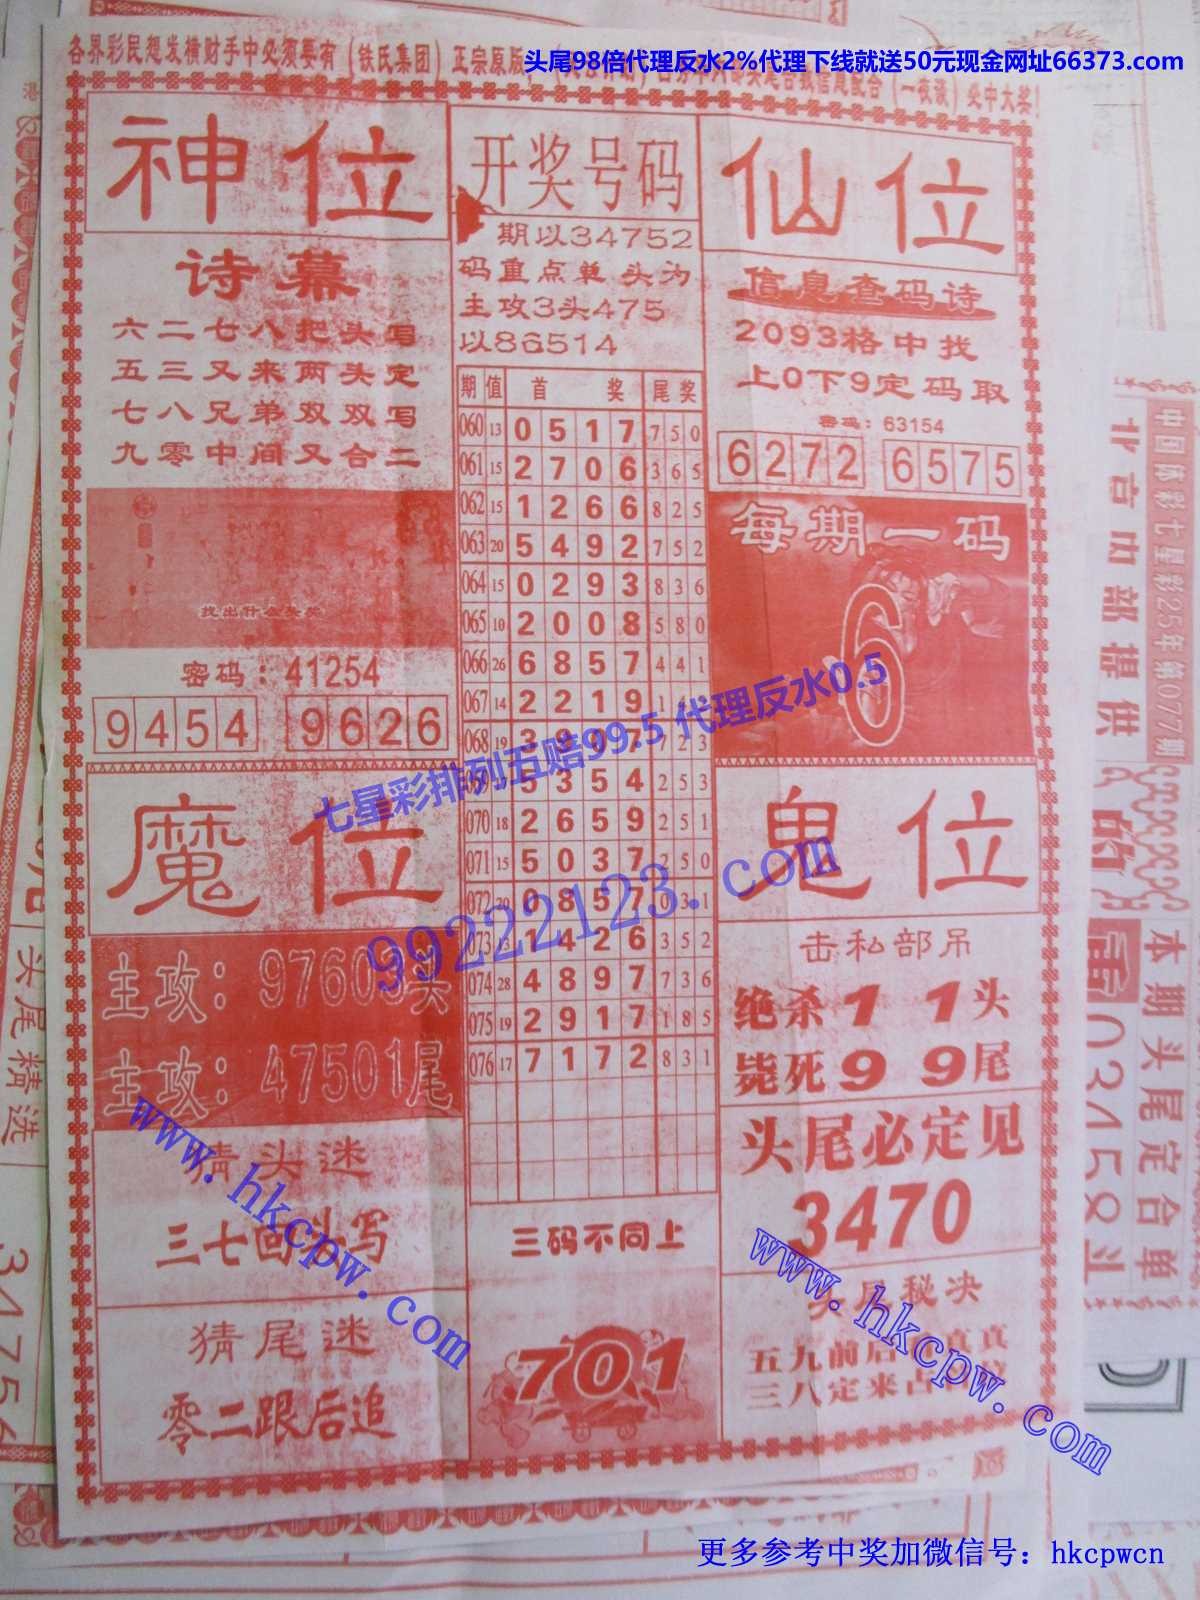 头尾98倍代理反水2%代理下线就送50元现金网址66373.com
各界彩民想发横财手中必须要有（铁氏集团）正宗原版
（一夜谈）必中大奖！
神位
开奖号码
仙位
诗幕
六二七八把头写
五三又来两头定
七八兄弟双双写
九零中间又合二
期以34752
码重点单头为
主攻3头475
以86514
信息查码诗
2093格中找
上0下9定码取
密码：63154
6272 6575
期 值 首 奖 尾 奖
060 13 0 5 1 7 7 5 0
061 15 2 7 0 6 3 6 5
062 15 1 2 6 6 8 2 5
063 20 5 4 9 2 7 5 2
064 15 0 2 9 3 8 3 6
065 10 2 0 0 8 5 8 0
066 26 6 8 5 7 4 4 1
067 14 2 2 1 9 1
068 19 3 7 7 2 3
5 3 5 4 2 5 3
070 18 2 6 5 9 2 5 1
071 15 5 0 3 7 2 5 0
072 20 0 8 5 7 0 3 1
073 13 1 4 2 6 3 5 2
074 28 4 8 9 7 7 3 6
075 19 2 9 1 7 1 8 5
076 17 7 1 7 2 8 3 1
找出什么头奖
密码：41254
9454 9626
每期一码
6
七星彩排列五赔99.5 代理反水0.5
99222123.com
魔位
鬼位
主攻：97603头
主攻：47501尾
击私部吊
绝杀1 1头
毙死9 9尾
头尾必定见
3470
猜头迷
三七回头写
猜尾迷
零二跟后追
三码不同上
701
头尾秘决
五九前后 真真
三八定来占
www.hkcpw.com
www.hkcpw.com
更多参考中奖加微信号：hkcpwcn
中国体彩七星彩25年第077期
北京内部提供
本期头尾定合单
头尾精选